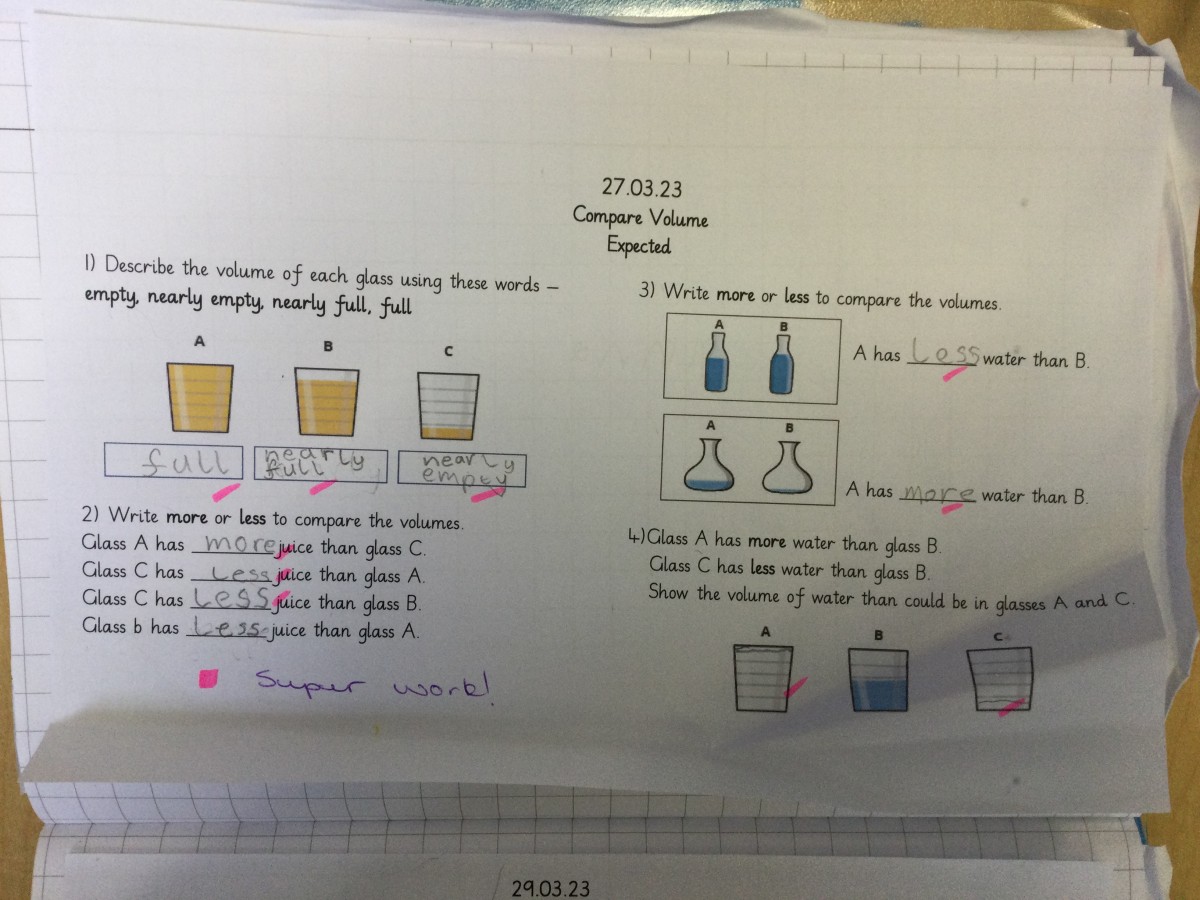 27.03.23
Compare Volume
Expected
1) Describe the volume of each glass using these words –
empty, nearly empty, nearly full, full
A B C
full nearly full nearly empty
2) Write more or less to compare the volumes.
Glass A has more juice than glass C.
Glass C has less juice than glass A.
Glass C has less juice than glass B.
Glass b has less juice than glass A.
Super work!
3) Write more or less to compare the volumes.
A B
A has less water than B.
A B
A has more water than B.
4)Glass A has more water than glass B.
Glass C has less water than glass B.
Show the volume of water than could be in glasses A and C.
A B C
29.03.23